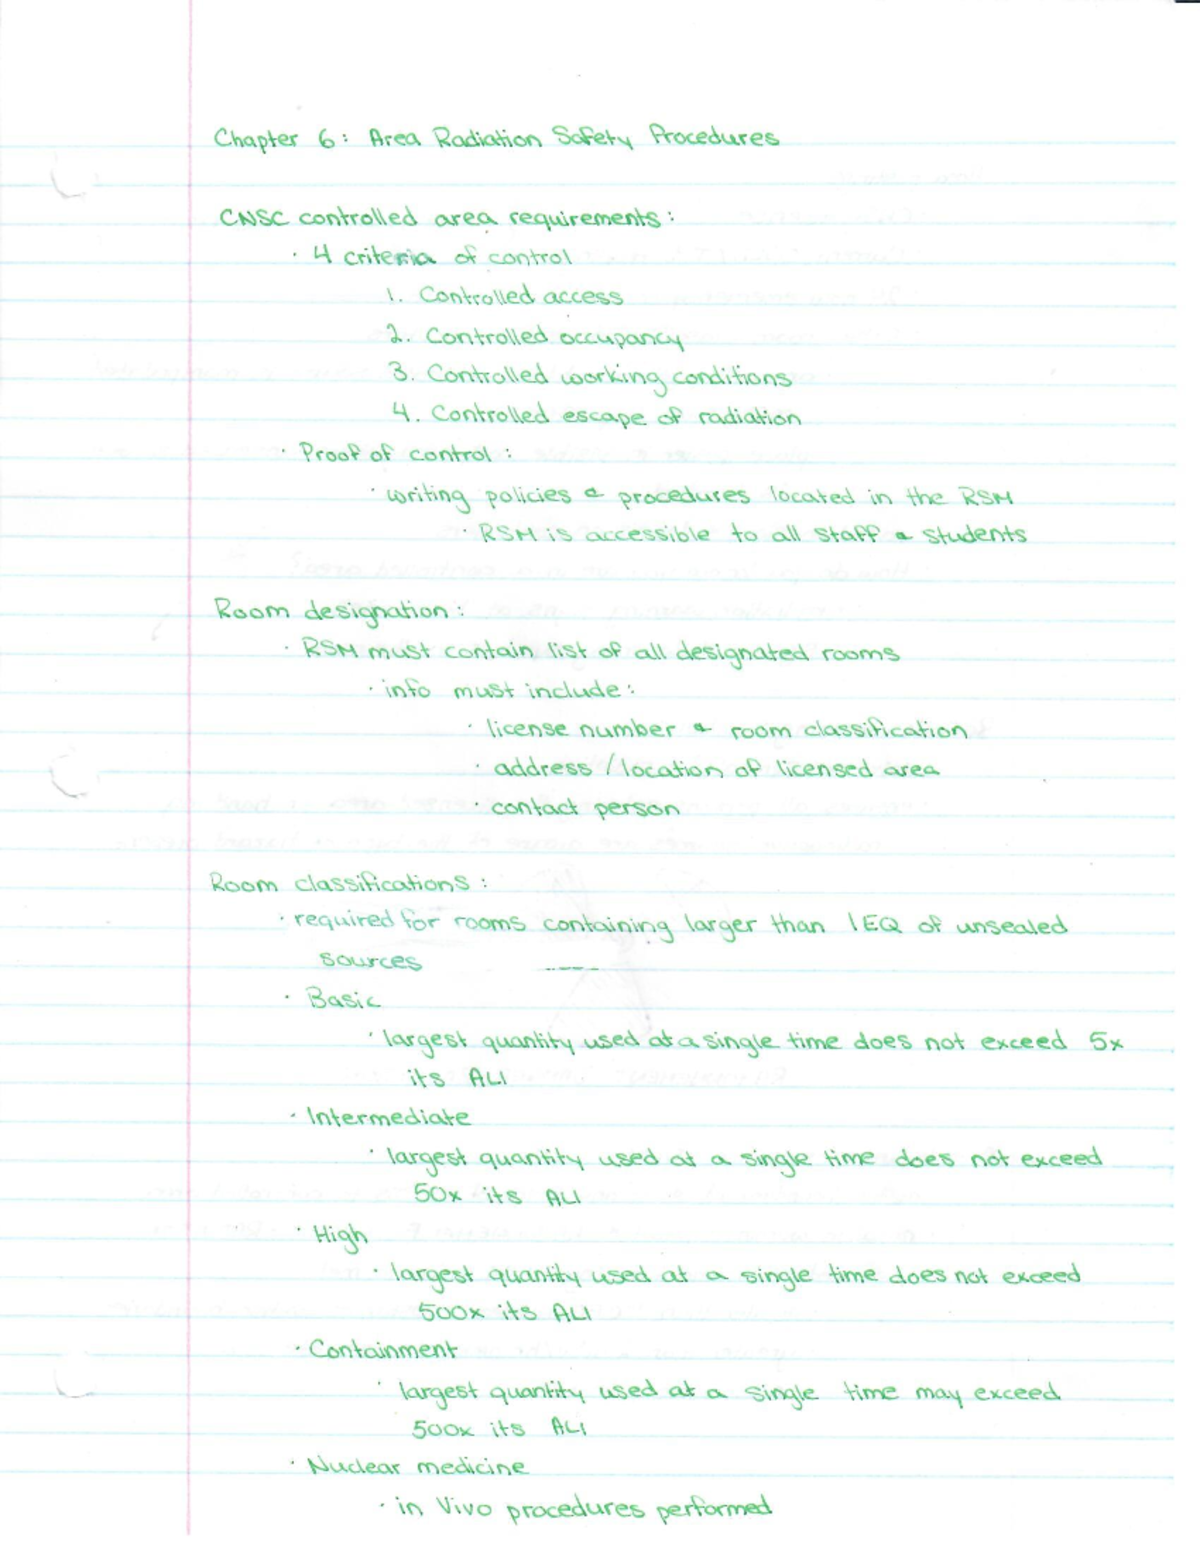 Chapter 6: Area Radiation Safety Procedures
CNSC controlled area requirements:
· 4 criteria of control
1. Controlled access
2. Controlled occupancy
3. Controlled working conditions
4. Controlled escape of radiation
· Proof of control:
· writing policies & procedures located in the RSM
· RSM is accessible to all staff & students
Room designation:
· RSM must contain list of all designated rooms
· info must include:
· license number & room classification
· address / location of licensed area
· contact person
Room classifications:
· required for rooms containing larger than 1EQ of unsealed
sources
· Basic
· largest quantity used at a single time does not exceed 5x
its ALI
· Intermediate
· largest quantity used at a single time does not exceed
50x its ALI
· High
· largest quantity used at a single time does not exceed
500x its ALI
· Containment
· largest quantity used at a single time may exceed
500x its ALI
· Nuclear medicine
· in Vivo procedures performed